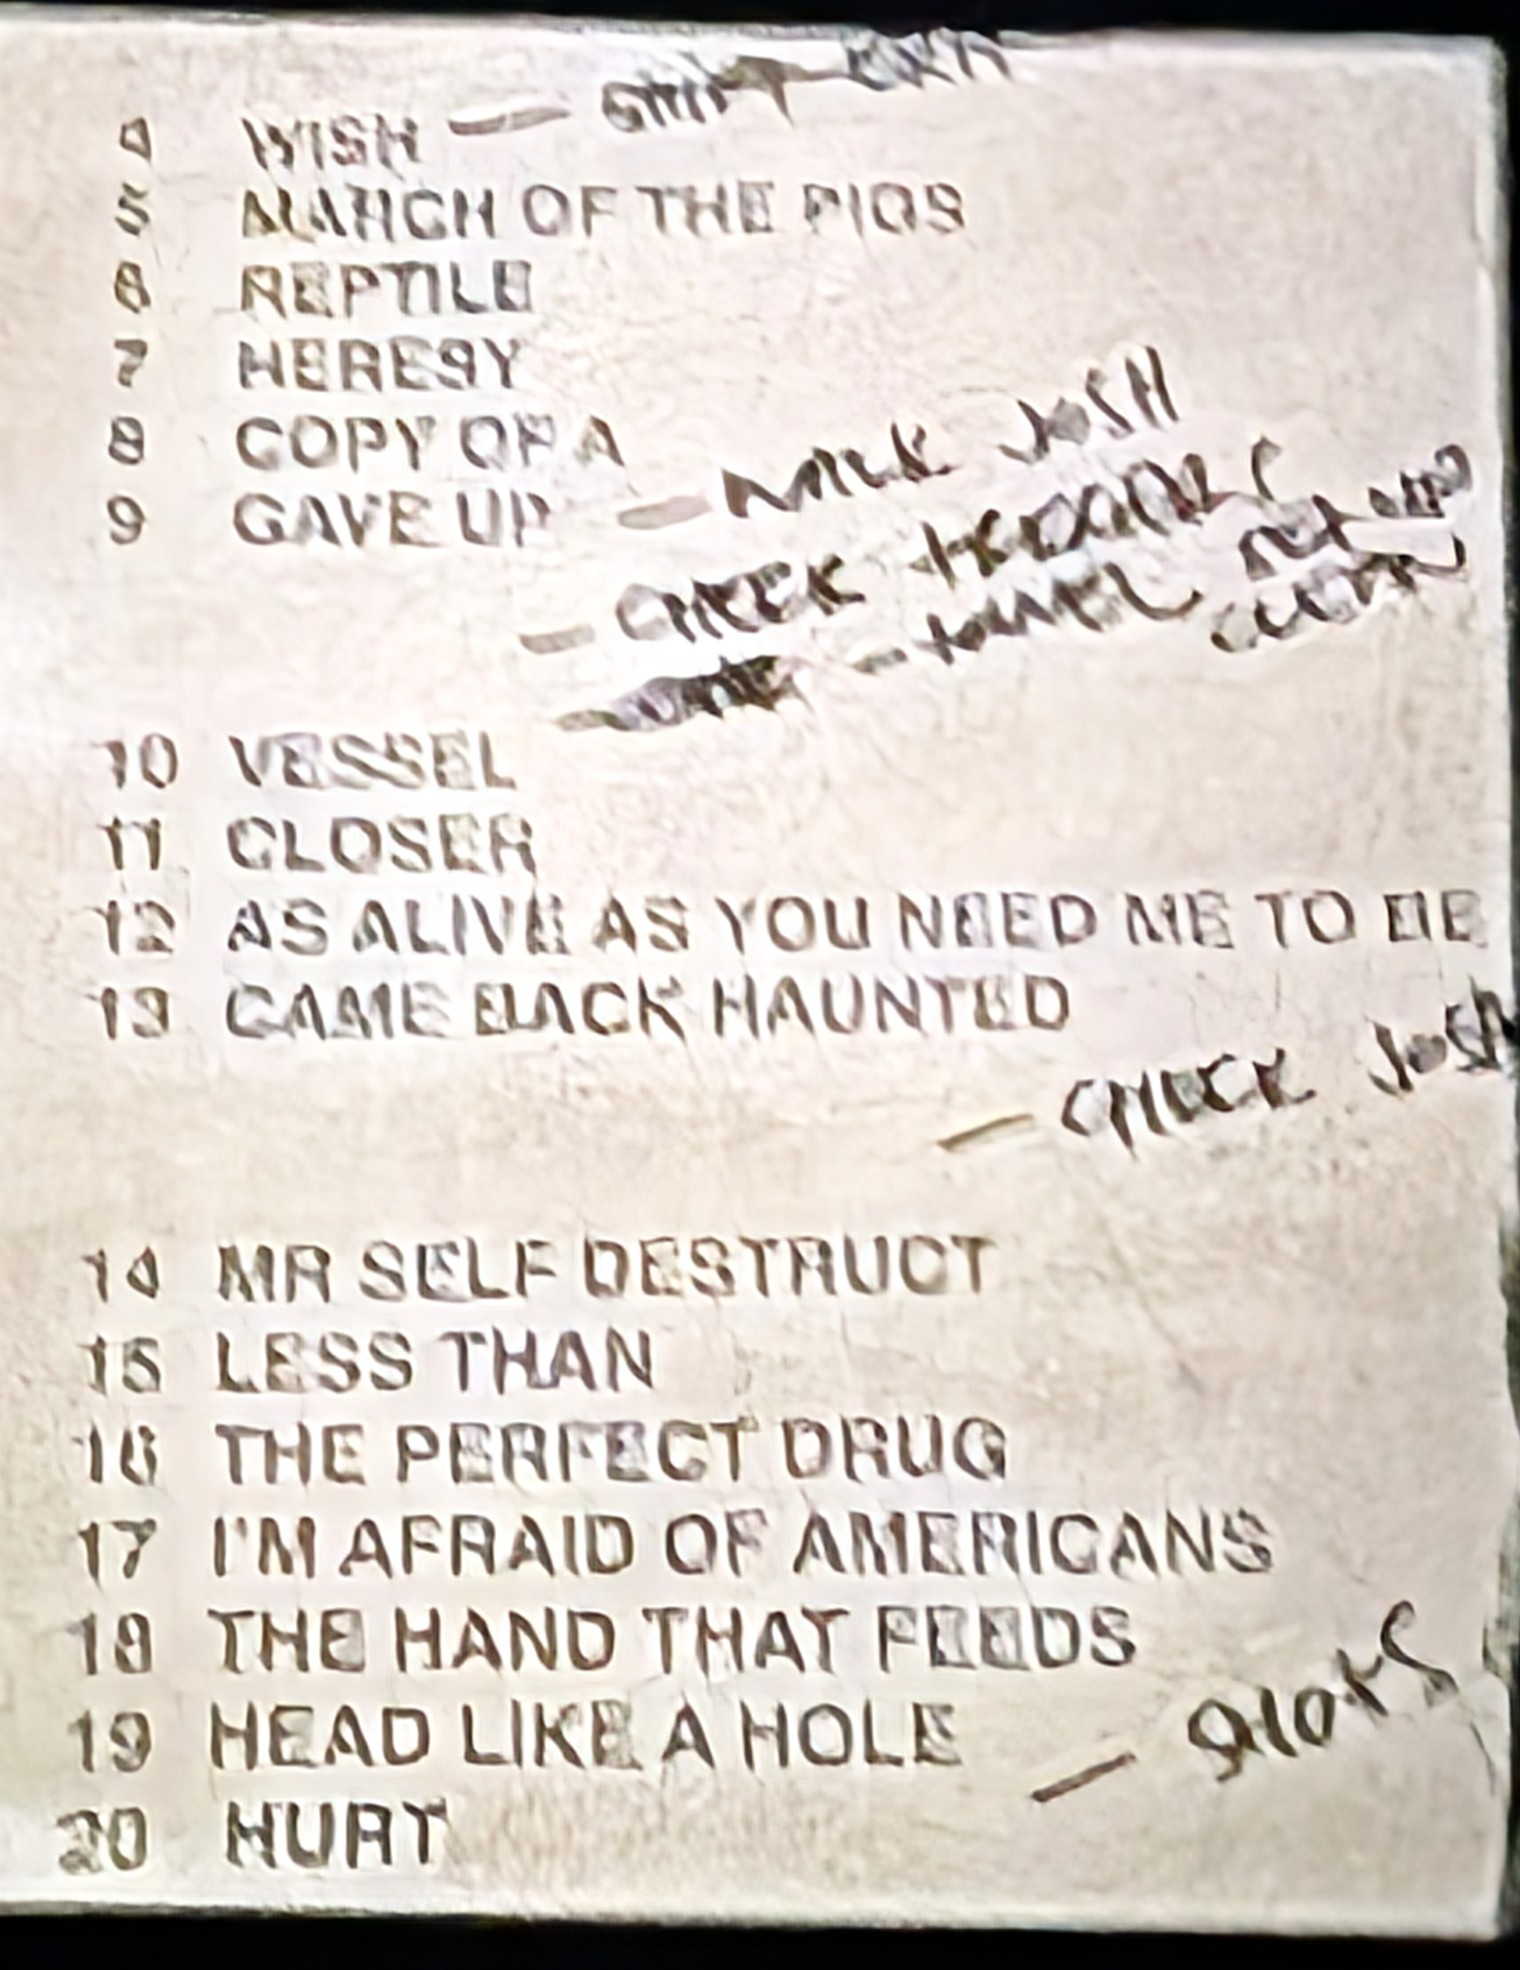 4 WISH —
5 MARCH OF THE PIGS
6 REPTILE
7 HERESY
8 COPY OF A
9 GAVE UP — JOSH
— CHECK
10 VESSEL
11 CLOSER
12 AS ALIVE AS YOU NEED ME TO BE
13 CAME BACK HAUNTED
— CHECK JOSH
14 MR SELF DESTRUCT
15 LESS THAN
16 THE PERFECT DRUG
17 I'M AFRAID OF AMERICANS
18 THE HAND THAT FEEDS
19 HEAD LIKE A HOLE —
20 HURT